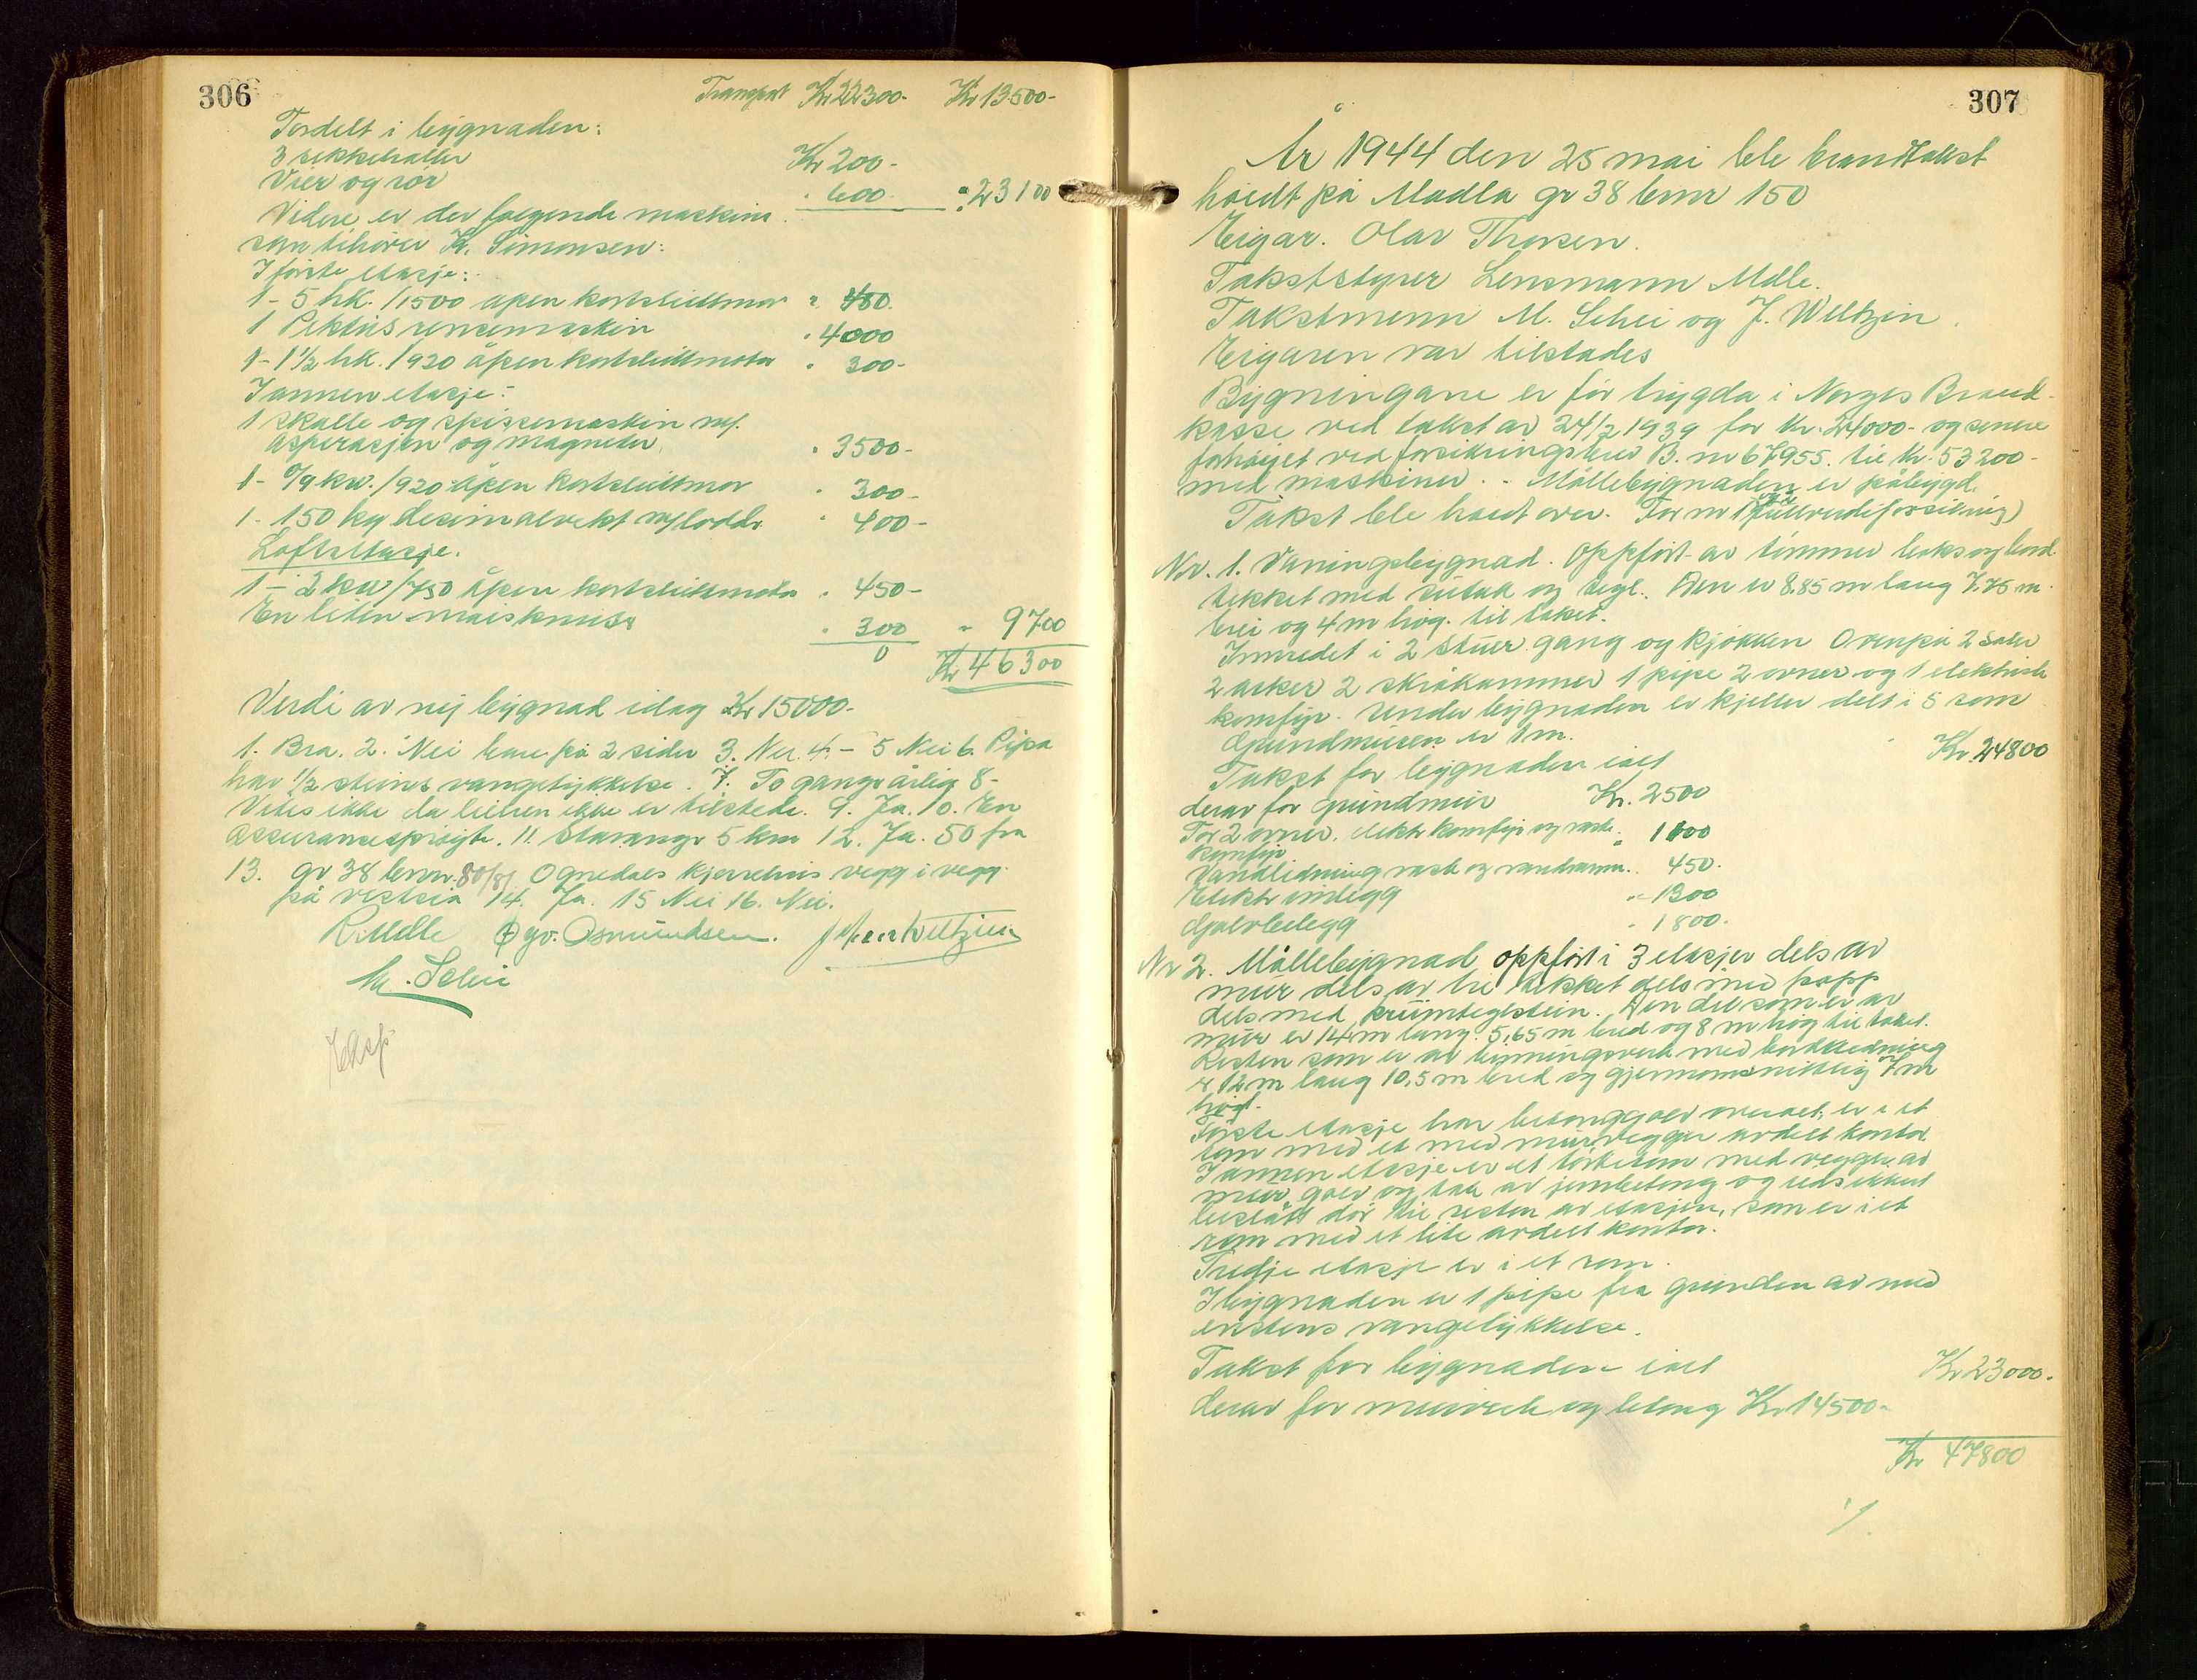 306
Transport Kr 22300.- Kr 13500-
Fordelt i bygnaden:
3 sekkehaller Kr 200-
Vier og rør " 600. " 23100
Videre er der følgende maskiner
som tilhører K. Simonsen:
I første etasje:
1- 5 hk. /1500 åpen kortsluttmotor " 450.
1 Piktus rensemaskin " 4000
1- 1½ hk. /920 åpen kortsluttmotor " 300-
I annen etasje:
1 skalle og spissemaskin m/.
asperasjon og magneter. " 3500-
1- kw. /920 åpen kortsluttmor " 300-
1- 150 kg desimalvekt m/lodd. " 400-
Loftsetasje.
1- 2 kw/750 åpen kortsluttmotor " 450-
En liten maisknuser " 300 " 9700
Kr 46300
Verdi av ny bygnad idag Kr 15000-
1. Bra. 2. Nei bare på 2 sider 3. Nei. 4.- 5 Nei 6. Pipa
har 1/2 steins vangetykkelse. 7. To ganger årlig 8-
Vites ikke da leieren ikke er tilstede. 9. Ja. 10. En
Assuransesprøyte. 11. Stavanger 5 km 12. Ja. 50 fra
13. gr 38 bnr. 80/81 Ognedals kjørehus vegg i vegg.
på vestsia 14. Ja. 15 Nei 16. Nei.
R. Mdle Øyv. Osmundsen. Weltzien
M. Schei
Eksp
307
År 1944 den 25 mai ble brandtakst
holdt på Madla gr 38 bnr 150
Eigar. Olav Thorsen.
Takststyrer Lensmann Mdle.
Takstmenn M. Schei og J. Weltzin.
Eigaren var tilstades
Bygningane er før trygda i Norges Brand-
kasse ved takst av 24/2 1939 for kr. 24000- og senere
forhøyet ved forsikringsbrev B. nr 67955. til kr. 53200-
med maskiner. - Møllebygnaden er påbygd.
Takst ble holdt over. For nr 1 fullverdiforsikring)
Nr. 1. Våningsbygnad. Oppført av tømmer boks og bord.
tekket med sutak og tegl. Den er 8,85 m lang 7.75 m.
brei og 4 m høg. til taket.
Innredet i 2 stuer gang og kjøkken Ovenpå 2 saler
2 arker 2 skråkammer 1 pipe 2 ovner og 1 elektrisk
komfyr. Under bygnaden er kjeller delt i 5 rom
Grundmuren er 1 m.
Takst for bygnaden ialt Kr. 24800
derav for grundmur Kr. 2500
For 2 ovner. elektr komfyr og vask. " 1100
komfyr
Vandledning vask og vandkumm. " 450.
Elektr innlegg " 1300
Golvbelegg " 1800.
Nr 2. Møllebygnad oppført i 3 etasjer dels av
mur dels av tre tekket dels med papp
dels med krumteglstein. Den del som er av
mur er 14 m lang. 5,65 m bred og 8 m høg til taket.
Resten som er av binningsverk med bordkledning
er 12 m lang 10,5 m bred og gjennomsnittlig 7 m
høg.
Første etasje har betonggolv overalt, er i et
rom med et med murvegger avdelt kontor.
I annen etasje er et tørkerom med vegger av
mur, golv og tak av jernbetong og ildsikkert
beslått dør til resten av etasjen, som er i et
rom med et lite avdelt kontor.
Tredje etasje er i et rom.
I bygnaden er 1 pipe fra grunden av med
enstens vangetykkelse.
Takst for bygnaden ialt Kr 23000.
derav for murverk og betong Kr 14500-
Kr 47800